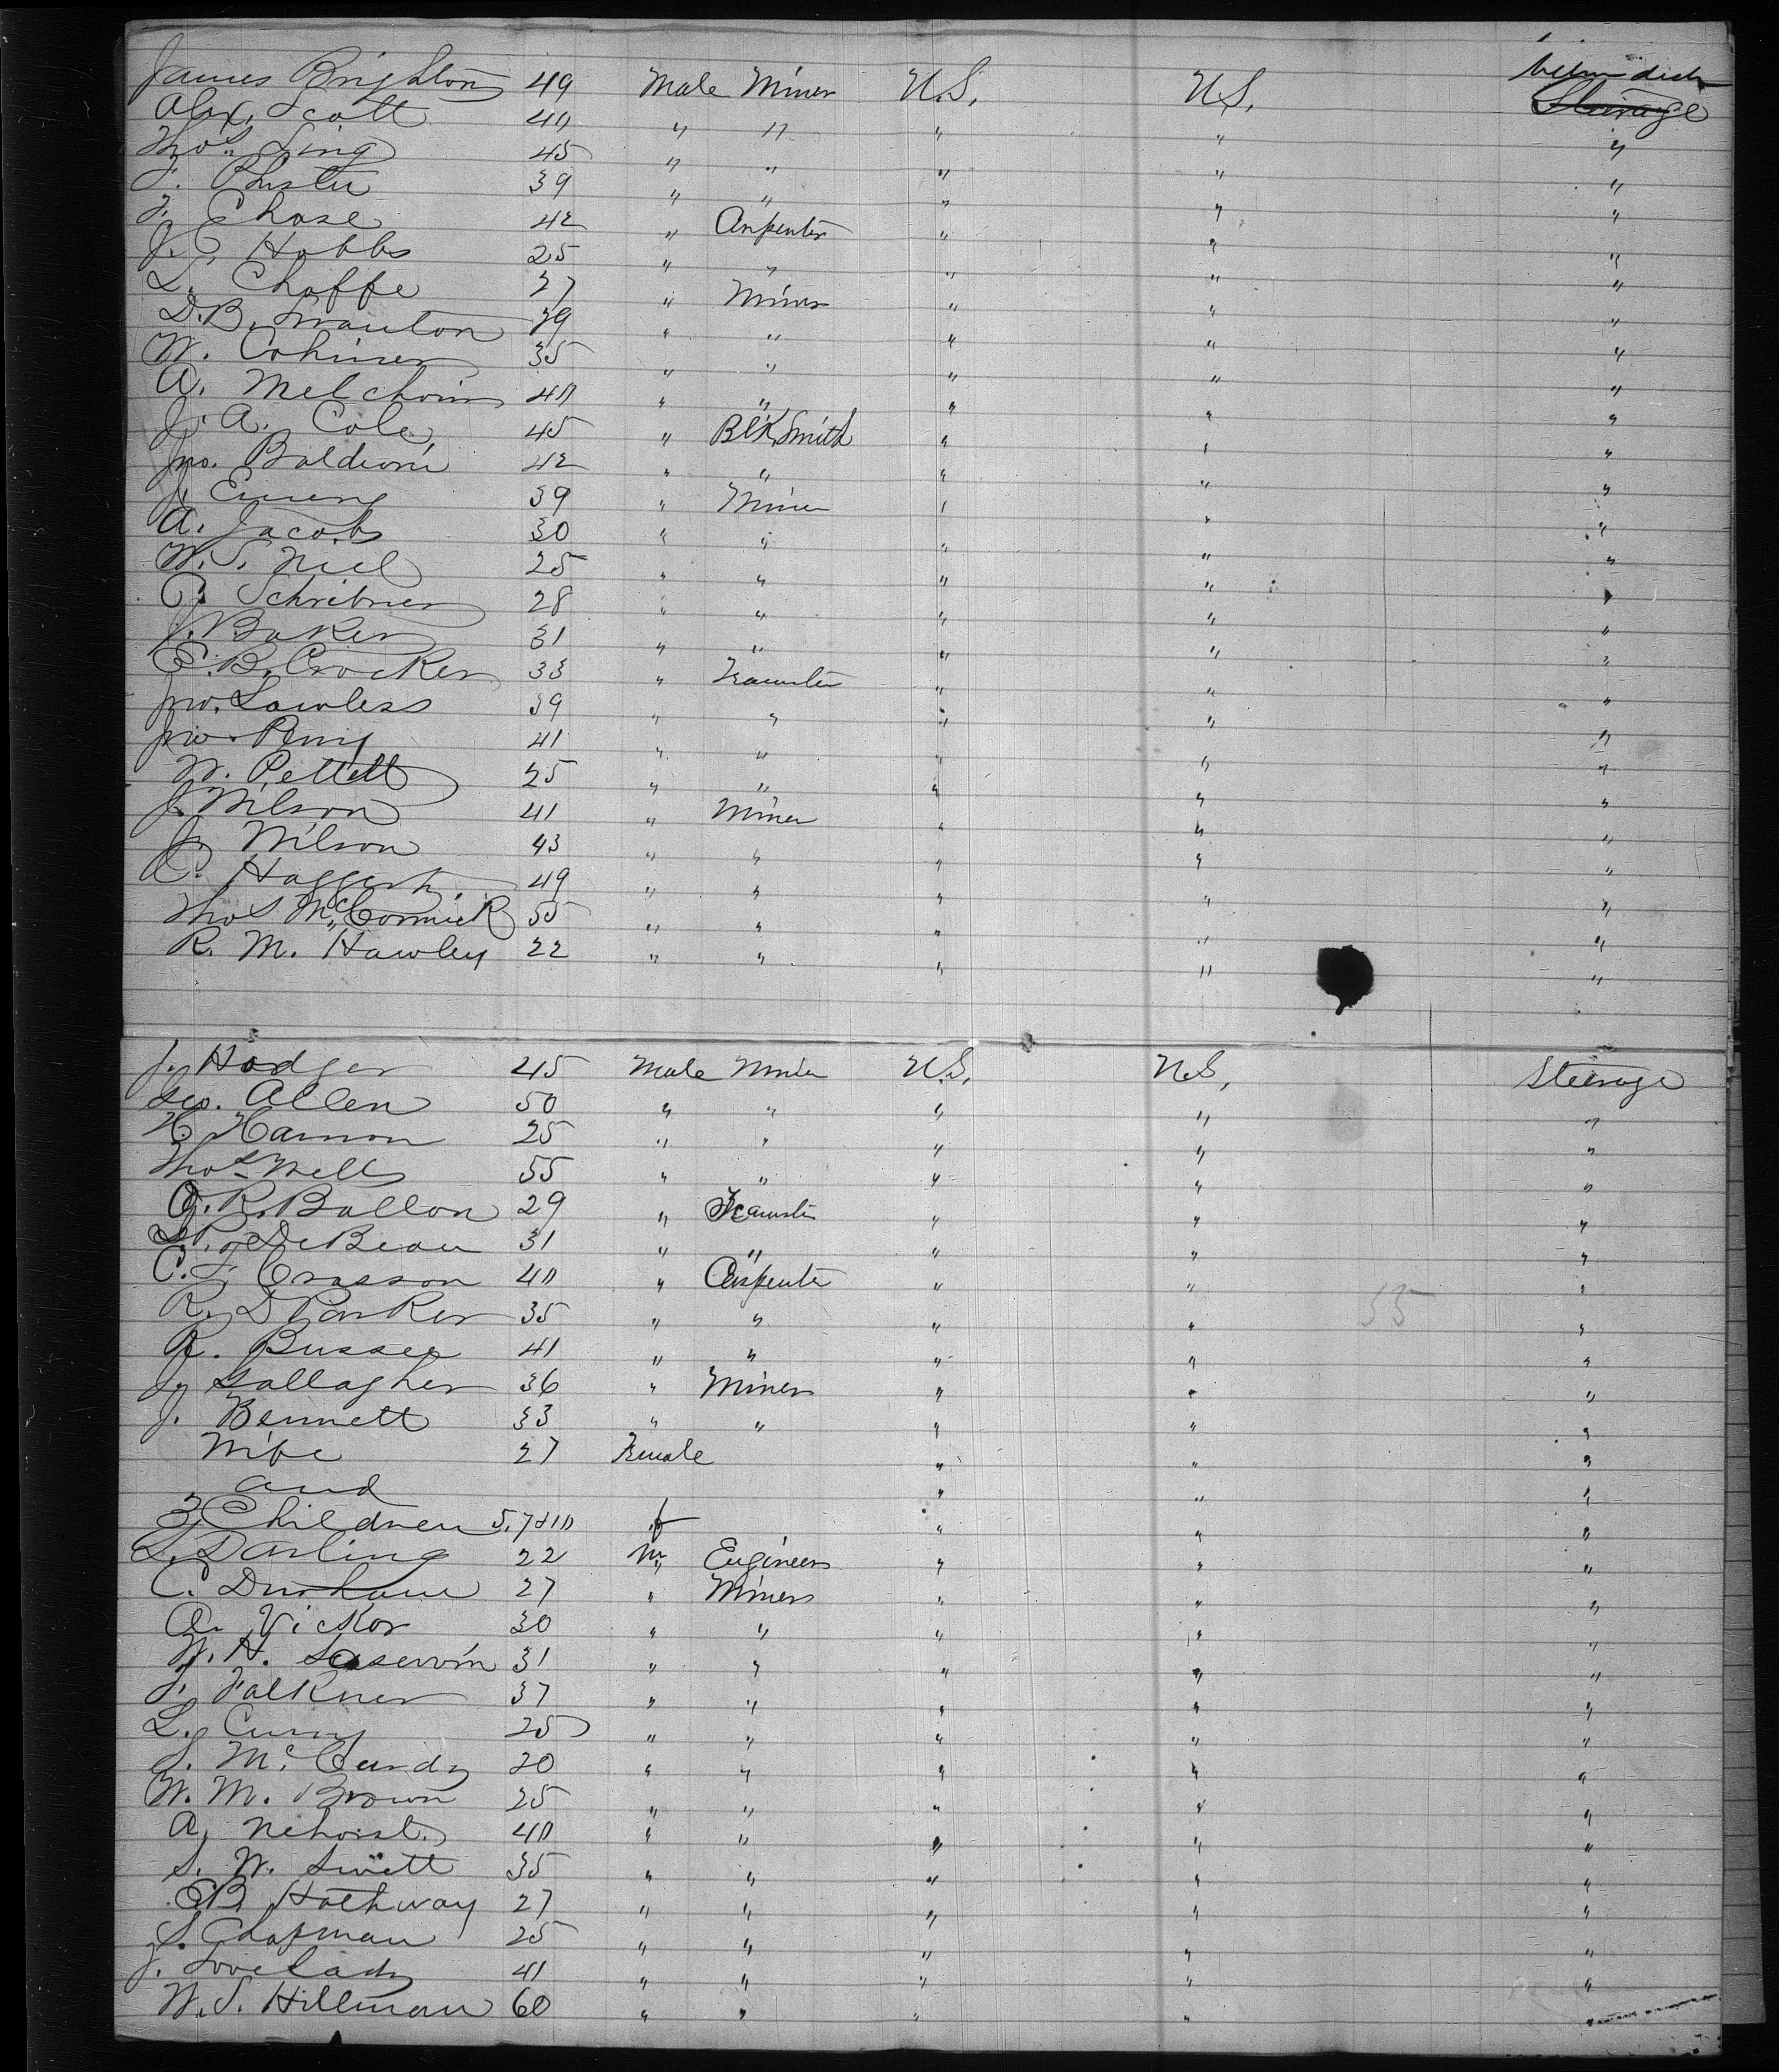 James Brighton 49 Male Miner U.S. U.S. betw deck
Steerage
Alex. Scott 40 " " " " "
Thos. King 45 " " " " "
F. Chester 39 " " " " "
F. Chase 42 " Carpenter " " "
J. C. Hobbs 25 " " " " "
L. Chaffe 27 " Miner " " "
D. B. Swanton 39 " " " " "
W. 35 " " " " "
A. Melchoir 40 " " " " "
J. A. Cole 45 " Blk Smith " " "
Jno. Baldwin 42 " " " " "
J. 39 " Miner " " "
A. Jacobs 30 " " " " "
W. S. Neel 25 " " " " "
C. Schribner 28 " " " " "
J. Baker 31 " " " " "
E. B. Crocker 33 " Teamster " " "
Jno. Lawless 39 " " " " "
Jno. Perry 41 " " " " "
W. Pettett 25 " " " " "
J. Wilson 41 " Miner " " "
J. Wilson 43 " " " " "
C. Haggerty 49 " " " " "
Thos McCormick 55 " " " " "
R. M. Hawley 22 " " " " "
J. Hodger 45 Male Miner U.S. U.S. Steerage
Geo. Allen 50 " " " " "
H. Harmon 25 " " " " "
Thos Wells 55 " " " " "
O. R. Ballon 29 " Teamster " " "
DeBeau 31 " " " " "
C. F. Crasson 40 " Carpenter " " "
R. D Parker 35 " " " " "
R. Bussee 41 " " " " "
J. Gallagher 36 " Miner " " "
J. Bennett 33 " " " " "
Wife 27 Female " " "
and " " "
3 Children 5, 7 & 10 f " " "
L. Darling 22 M Engineer " " "
C. Durham 27 " Miner " " "
A. Vickor 30 " " " " "
W. H. 31 " " " " "
F. Falkner 37 " " " " "
L. Curry 25 " " " " "
S. McCurdy 20 " " " " "
W. M. Brown 25 " " " " "
A. Nehorst 40 " " " " "
S. W. Swett 35 " " " " "
E B. Hathway 27 " " " " "
S. Chapman 25 " " " " "
J. Lovelady 41 " " " " "
W. S. Hillman 60 " " " " "
55